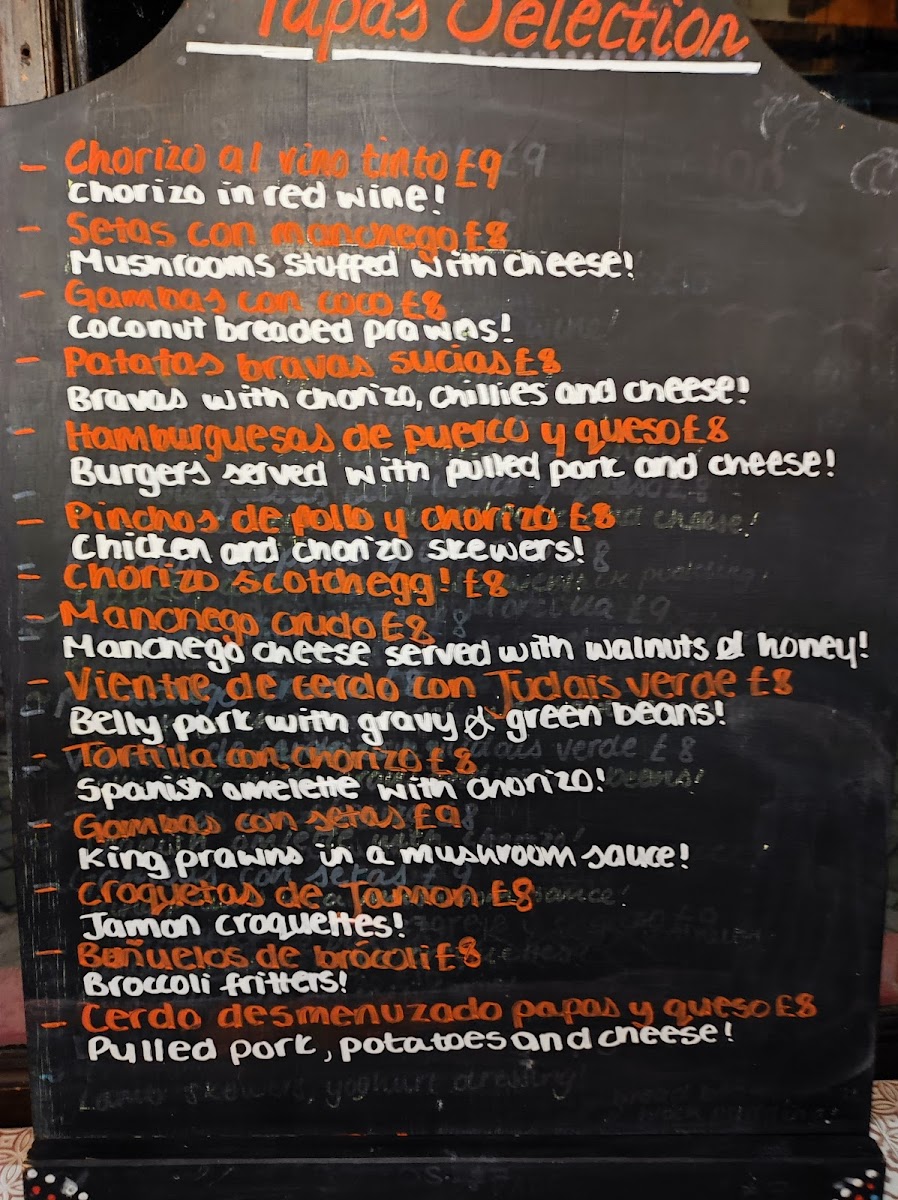 Tapas Selection
- Chorizo al vino tinto £9
Chorizo in red wine!
- Setas con manchego £8
Mushrooms stuffed with cheese!
- Gambas con coco £8
Coconut breaded prawns!
- Patatas bravas sucias £8
Bravas with chorizo, chillies and cheese!
- Hamburguesas de puerco y queso £8
Burgers served with pulled pork and cheese!
- Pinchos de pollo y chorizo £8
Chicken and chorizo skewers!
- Chorizo scotchegg! £8
- Manchego crudo £8
Manchego cheese served with walnuts & honey!
- Vientre de cerdo con Judais verde £8
Belly pork with gravy & green beans!
- Tortilla con chorizo £8
Spanish omelette with chorizo!
- Gambas con setas £9
King prawns in a mushroom sauce!
- Croquetas de Jamon £8
Jamon croquettes!
- Buñuelos de brócoli £8
Broccoli fritters!
- Cerdo desmenuzado papas y queso £8
Pulled pork, potatoes and cheese!
Lamb skewers, yoghurt dressing!